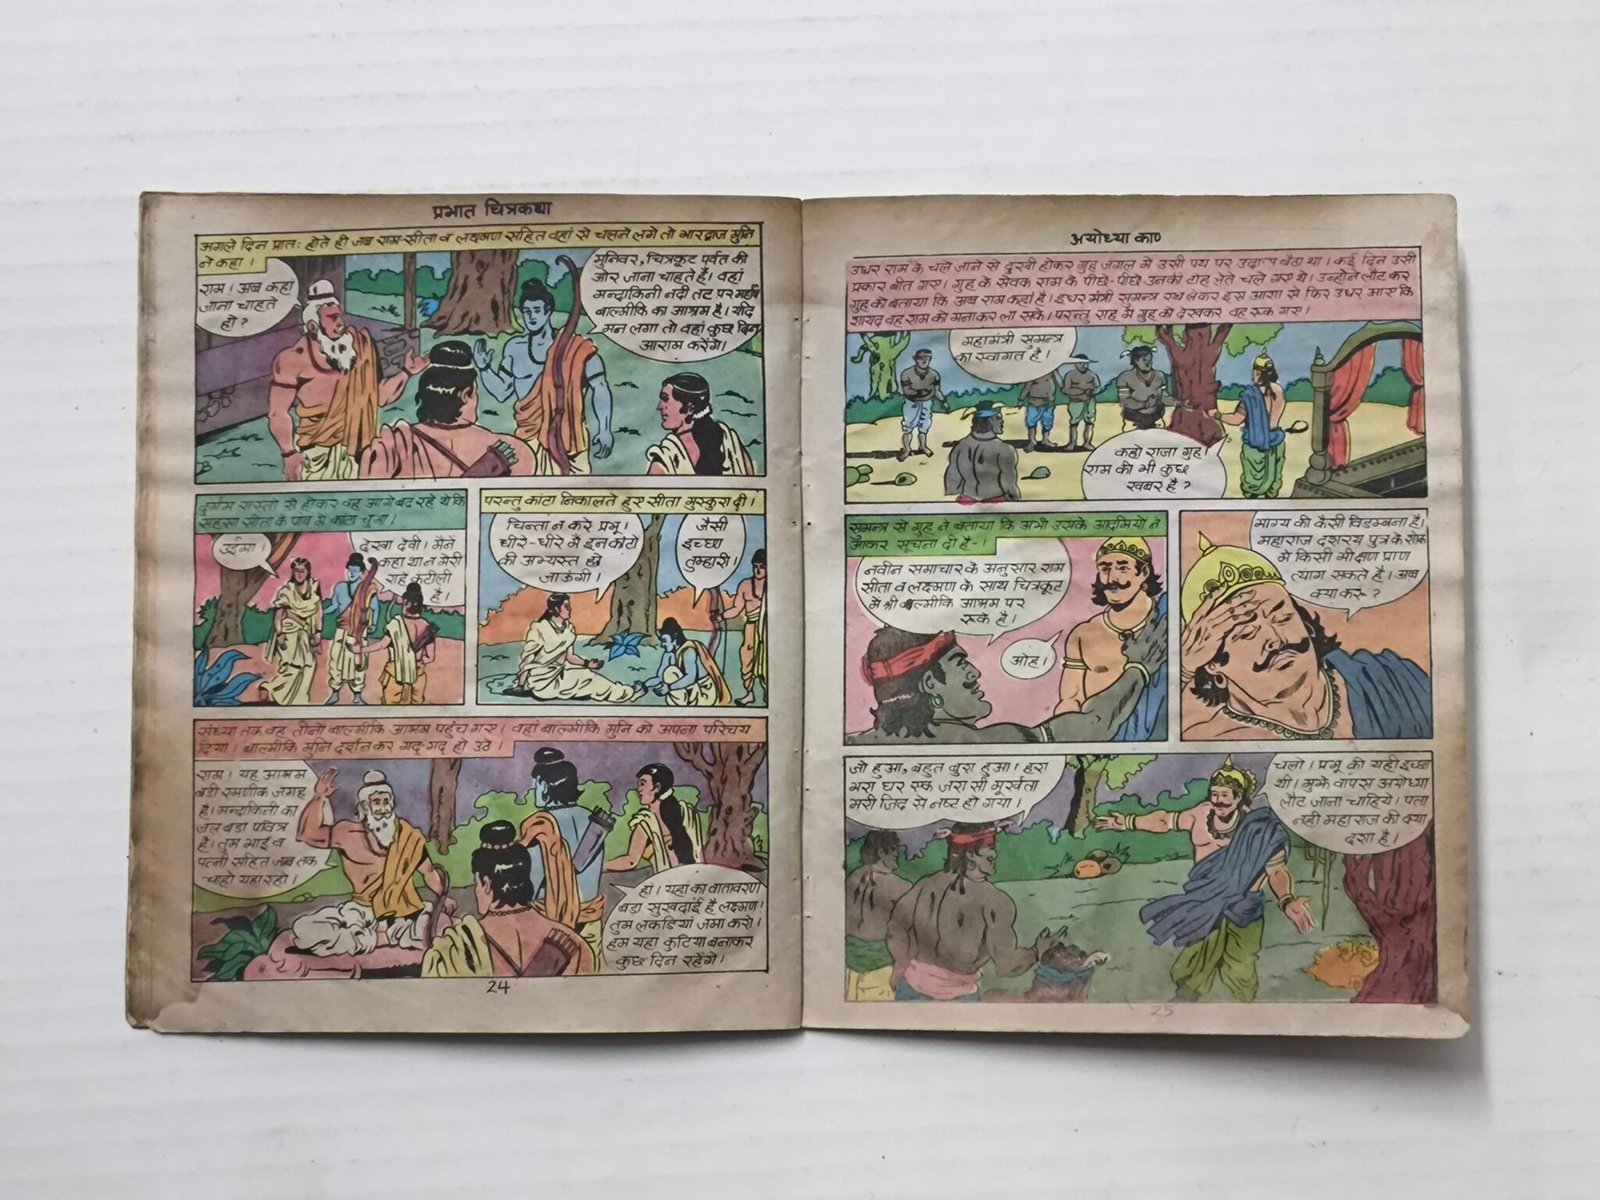 प्रभात चित्रकथा
अगले दिन प्रातः होते ही जब राम-सीता व लक्ष्मण सहित वहां से चलने लगे तो भारद्वाज मुनि
ने कहा।
राम। अब कहां
जाना चाहते
हो?
मुनिवर, चित्रकूट पर्वत की
ओर जाना चाहते हैं। वहां
मन्दाकिनी नदी तट पर महर्षि
बाल्मीकि का आश्रम है। यदि
मन लगा तो वहां कुछ दिन
आराम करेंगे।
दुर्गम रास्तो से होकर वह आगे बढ़ रहे थे कि
सहसा सीता के पांव में कांटा चुभा।
उईमा।
देखा देवी। मैंने
कहा था न मेरी
राहें कंटीली
है।
परन्तु कांटा निकालते हुए सीता मुस्कुरा दी।
चिन्ता न करे प्रभू।
धीरे-धीरे मैं इन कांटो
की अभ्यस्त हो
जाऊंगी।
जैसी
इच्छा
तुम्हारी।
संध्या तक वह तीनो बाल्मीकि आश्रम पहुंच गए। वहां बाल्मीकि मुनि को अपना परिचय
दिया। बाल्मीकि मुनि दर्शनकर गद्-गद् हो उठे।
राम। यह आश्रम
बड़ी रमणीक जगह
है। मन्दाकिनी का
जल बड़ा पवित्र
है। तुम भाई व
पत्नी सहित जब तक
चाहो यहां रहो।
हां। यहां का वातावरण
बड़ा सुखदाई है लक्ष्मण।
तुम लकड़ियां जमा करो।
हम यहां कुटिया बनाकर
कुछ दिन रहेंगे।
24
अयोध्या काण
उधर राम के चले जाने से दुखी होकर गुह जंगल मे उसी पथ पर उदास बैठा था। कई दिन उसी
प्रकार बीत गए। गुह के सेवक राम के पीछे-पीछे उनकी टोह लेते चले गए थे। उन्होंने लौट कर
गुह को बताया कि अब राम कहां है। इधर मंत्री सुमन्त्र रथ लेकर इस आशा से फिर उधर आए कि
शायद वह राम को मनाकर ला सकें। परन्तु राह में गुह को देखकर वह रुक गए।
महामंत्री सुमन्त्र
का स्वागत है।
कहो राजा गुह।
राम की भी कुछ
खबर है?
सुमन्त्र से गुह ने बताया कि अभी उसके आदमियो ने
आकर सूचना दी है-।
नवीन समाचार के अनुसार राम
सीता व लक्ष्मण के साथ चित्रकूट
मे श्री बाल्मीकि आश्रम पर
रूके है।
ओह।
भाग्य की कैसी विडम्बना है।
महाराज दशरथ पुत्र के शोक
में किसी भी क्षण प्राण
त्याग सकते है। अब
क्या करू?
जो हुआ, बहुत बुरा हुआ। हरा
भरा घर एक जरा सी मूर्खता
भरी जिद से नष्ट हो गया।
चलो। प्रभू की यही इच्छा
थी। मुझे वापस अयोध्या
लौट जाना चाहिये। पता
नही महाराज की क्या
दशा है।
25